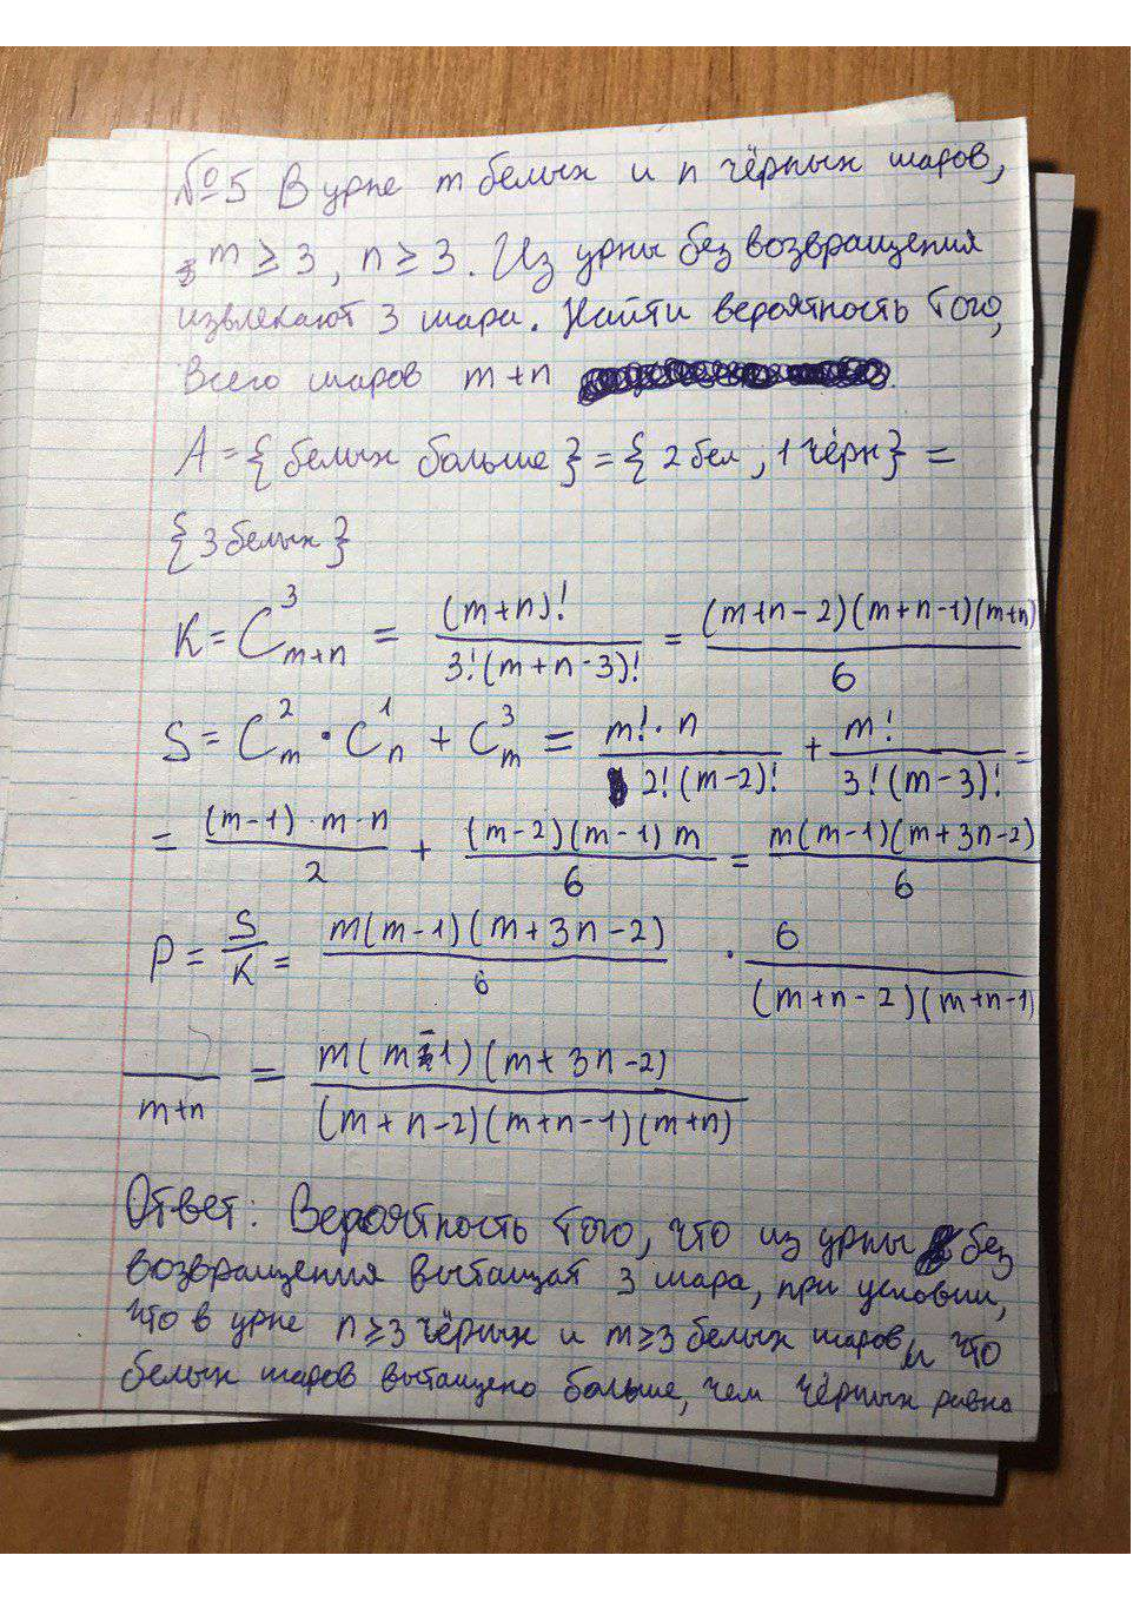 №5 В урне m белых и n чёрных шаров,
m ≥ 3, n ≥ 3. Из урны без возвращения
извлекают 3 шара. Найти вероятность того,
Всего шаров m+n
A = { белых больше } = { 2 бел, 1 чёрн } =
{ 3 белых }
K = C_{m+n}^{3} = (m+n)! / 3!(m+n-3)! = (m+n-2)(m+n-1)(m+n) / 6
S = C_{m}^{2} · C_{n}^{1} + C_{m}^{3} = m!·n / 2!(m-2)! + m! / 3!(m-3)! =
= (m-1)·m·n / 2 + (m-2)(m-1)m / 6 = m(m-1)(m+3n-2) / 6
P = S / K = m(m-1)(m+3n-2) / 6 · 6 / (m+n-2)(m+n-1)
/ m+n = m(m-1)(m+3n-2) / (m+n-2)(m+n-1)(m+n)
Ответ: Вероятность того, что из урны без
возвращения вытащат 3 шара, при условии,
что в урне n≥3 чёрных и m≥3 белых шаров, и что
белых шаров вытащено больше, чем чёрных равна